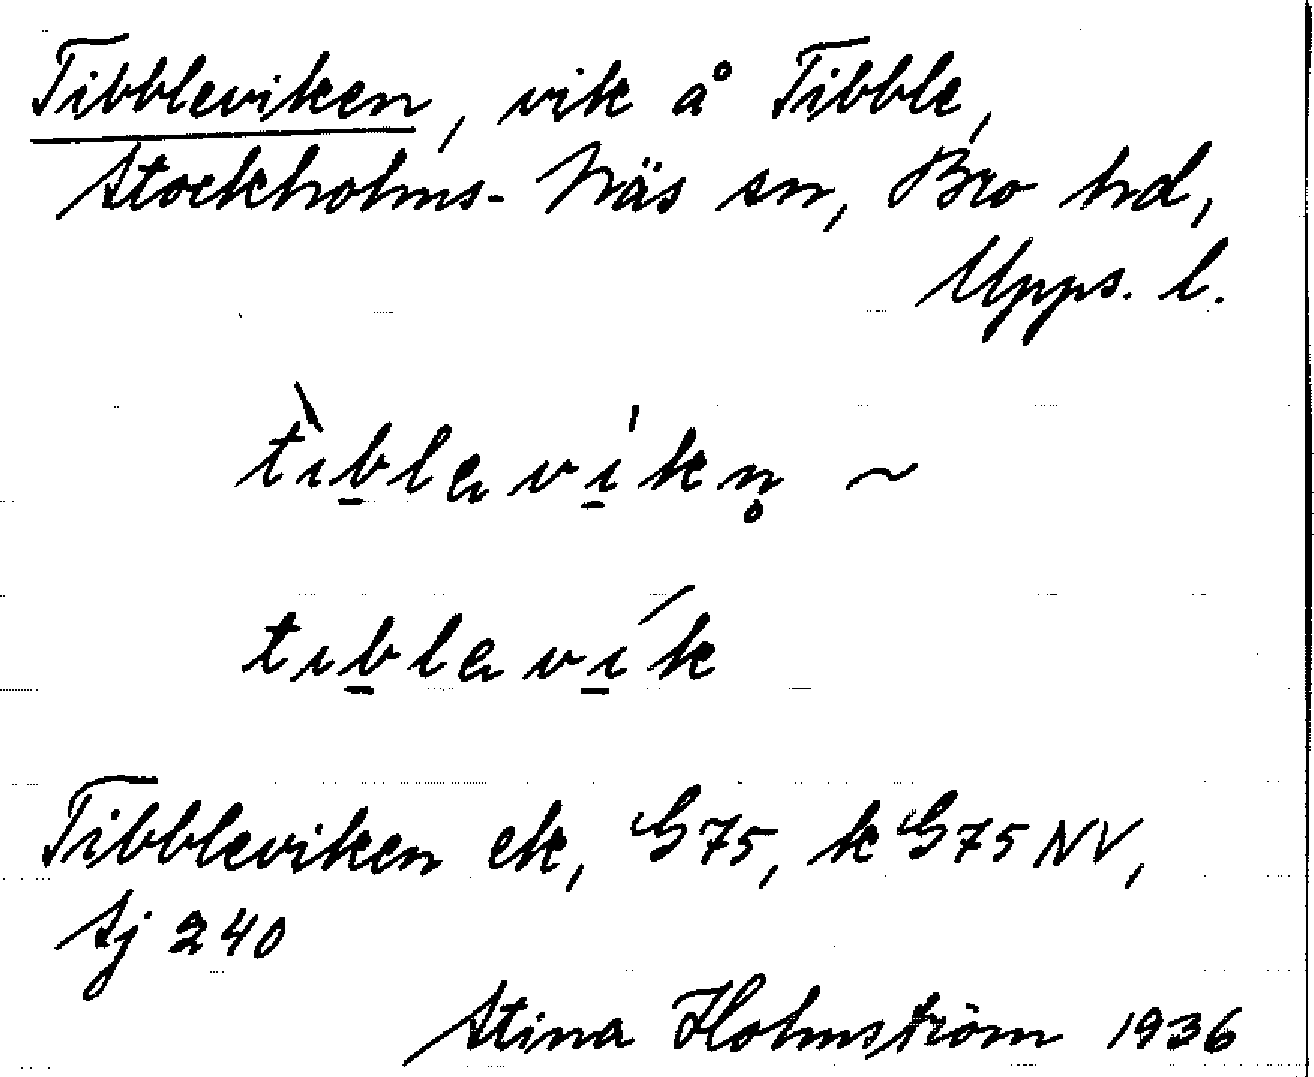 Tibbleviken, vik å Tibble,
Stockholms-Näs sn, Bro hd,
Upps. l.
tìb̲ləvi̲̍kn̥ ~
tıb̲ləví̲k
Tibbleviken ek, G75, k G75 NV,
Sj 240
Stina Holmström 1936